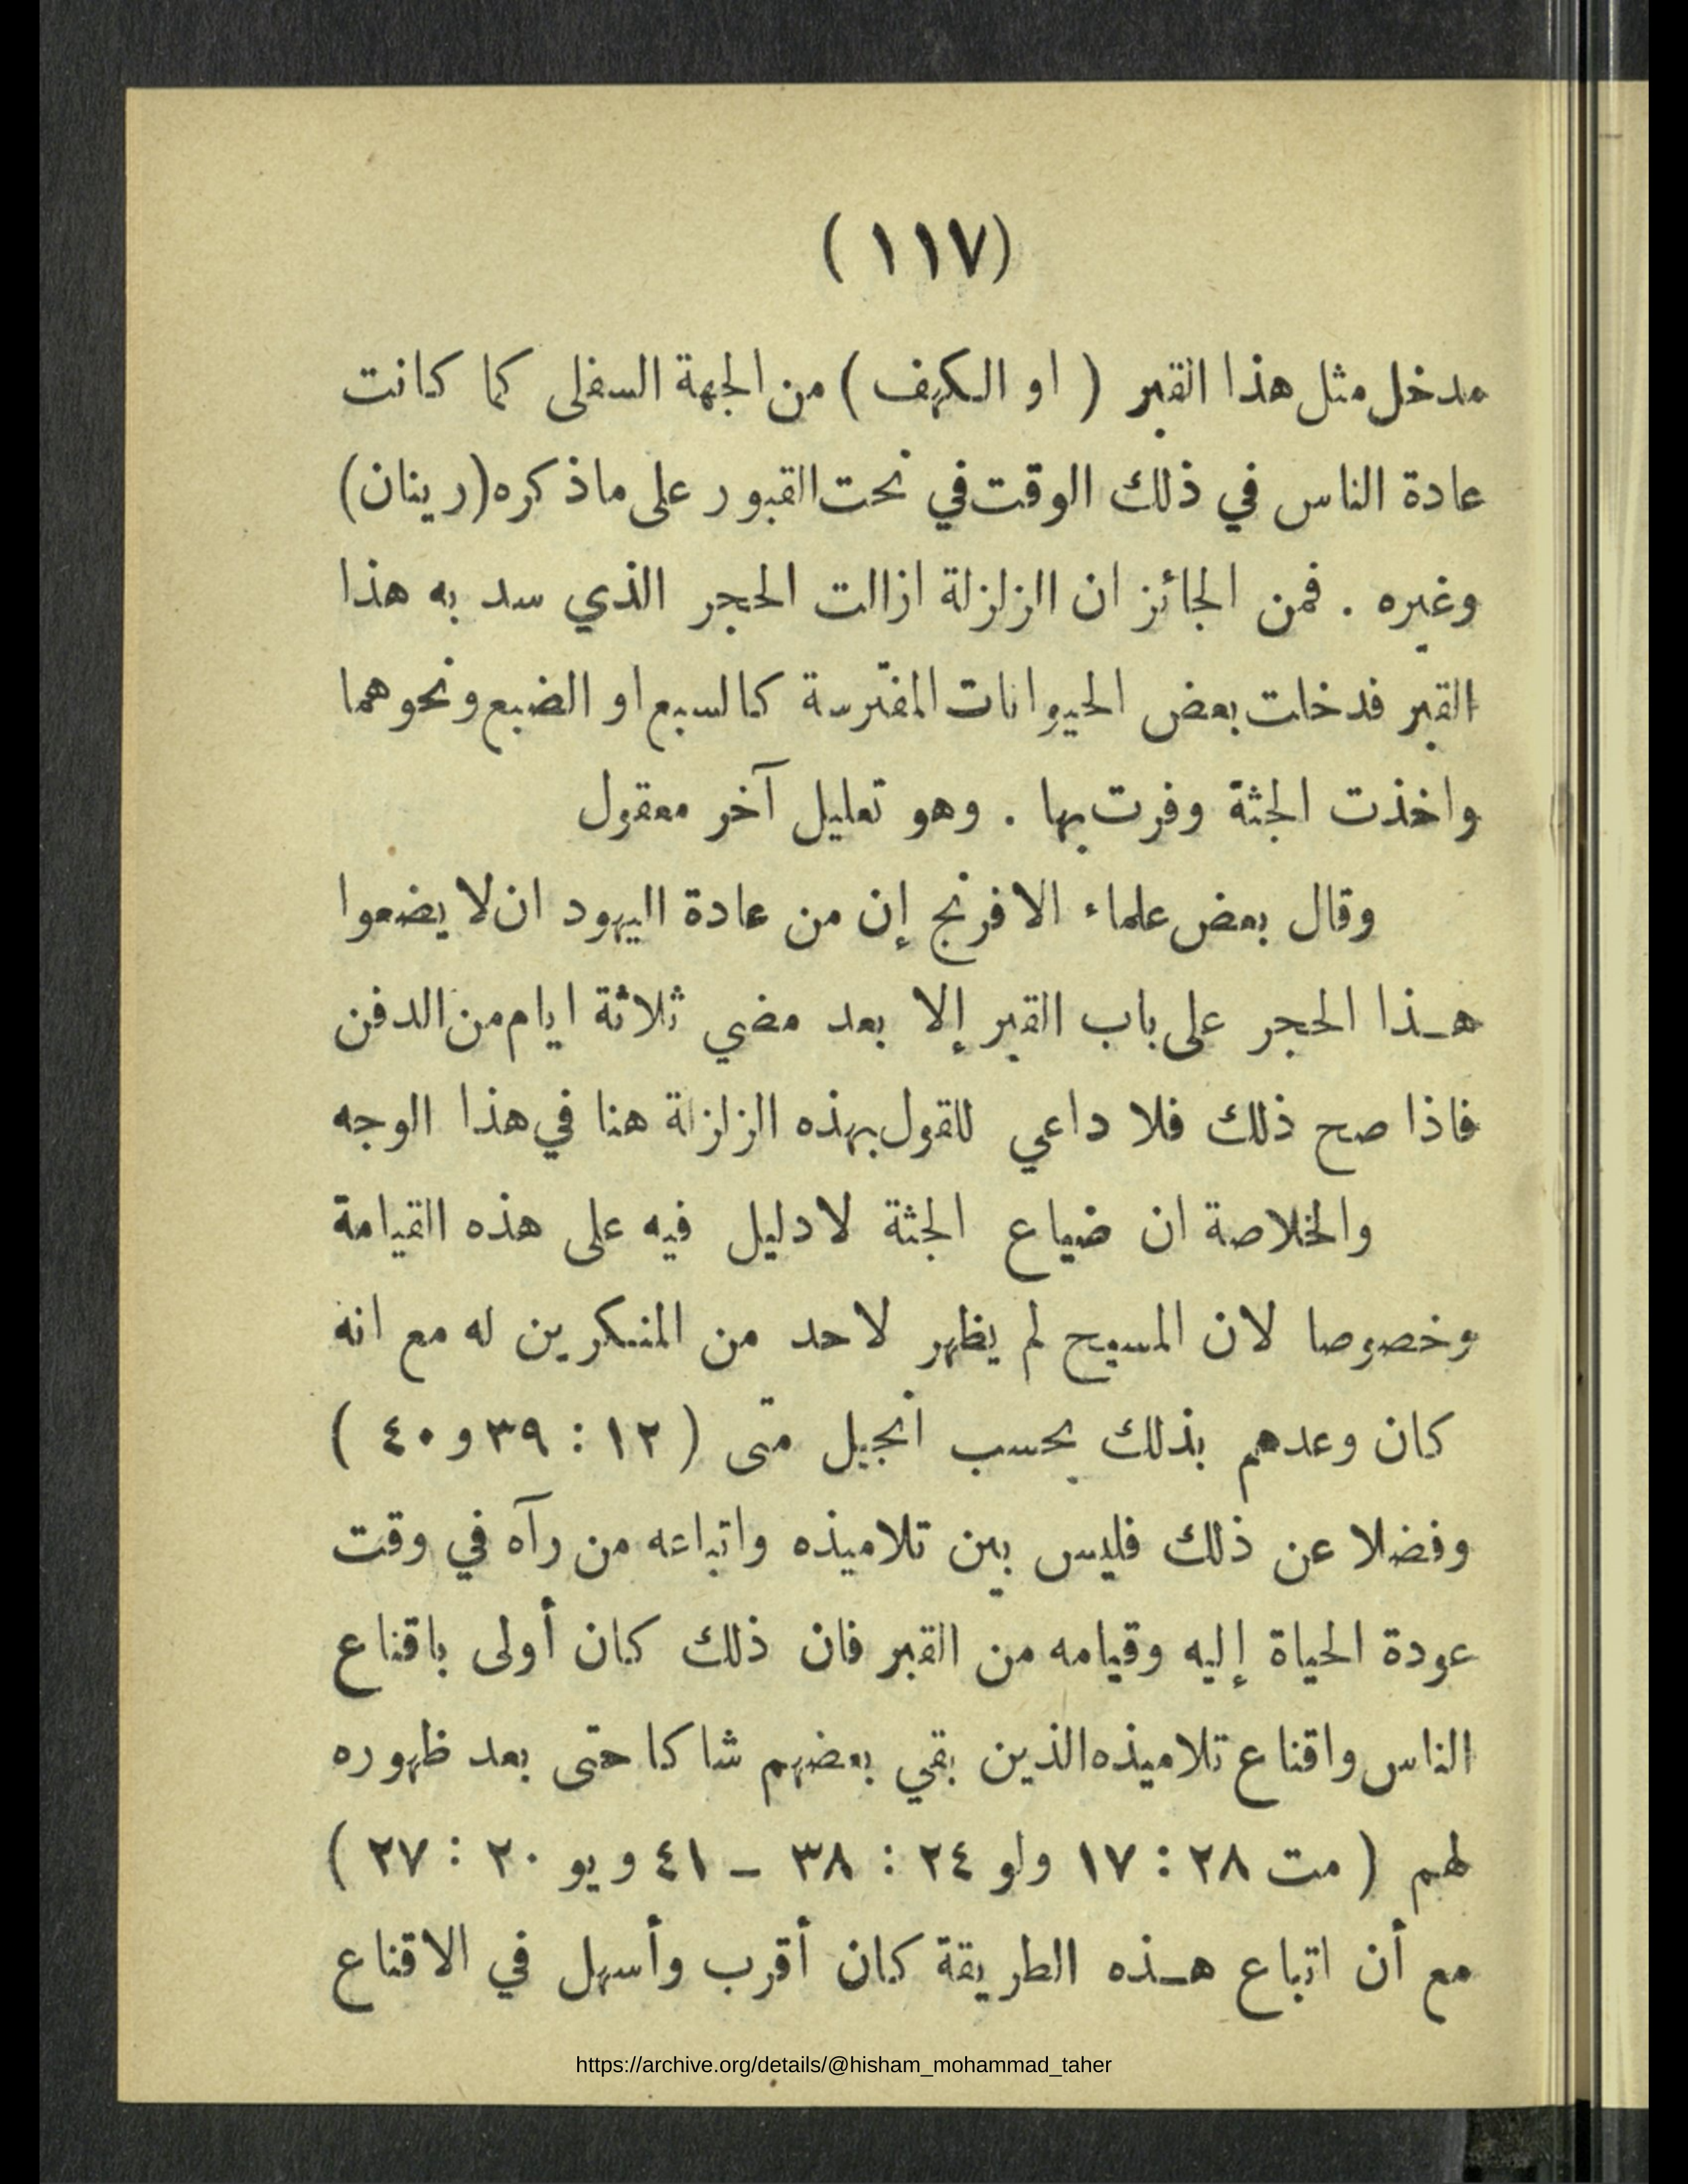 (١١٧)
مدخل مثل هذا القبر (او الكهف) من الجهة السفلى كما كانت
عادة الناس في ذلك الوقت في نحت القبور على ما ذكره (رينان)
وغيره . فمن الجائز ان الزلزلة ازالت الحجر الذي سد به هذا
القبر فدخلت بعض الحيوانات المفترسة كالسبع او الضبع ونحوهما
واخذت الجثة وفرت بها . وهو تعليل آخر معقول
وقال بعض علماء الافرنج إن من عادة اليهود ان لا يضعوا
هـذا الحجر على باب القبر إلا بعد مضي ثلاثة ايام من الدفن
فاذا صح ذلك فلا داعي للقول بهذه الزلزلة هنا في هذا الوجه
والخلاصة ان ضياع الجثة لا دليل فيه على هذه القيامة
وخصوصا لان المسيح لم يظهر لاحد من المنكرين له مع انه
كان وعدهم بذلك بحسب انجيل متى (١٢ : ٣٩ و ٤٠)
وفضلا عن ذلك فليس بين تلاميذه واتباعه من رآه في وقت
عودة الحياة إليه وقيامه من القبر فان ذلك كان أولى باقناع
الناس واقناع تلاميذه الذين بقي بعضهم شاكا حتى بعد ظهوره
لهم (مت ٢٨ : ١٧ ولو ٢٤ : ٣٨ – ٤١ و يو ٢٠ : ٢٧)
مع أن اتباع هـذه الطريقة كان أقرب وأسهل في الاقناع
https://archive.org/details/@hisham_mohammad_taher